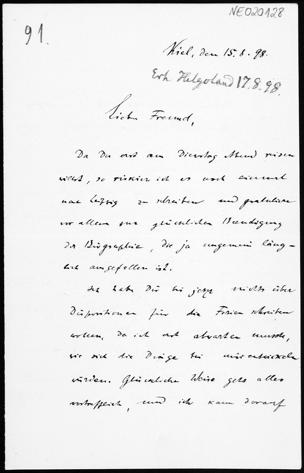 NE020128
91.
Kiel, den 15.8.98.
Erh. Helgoland 17.8.98.
Lieber Freund,
Da Du erst am Dienstag Abend reisen
willst, so riskire ich es noch einmal
nach Leipzig zu schreiben und gratulire
vor allem zur glücklichen Beendigung
der Biographie, die ja ungemein läng-
lich ausgefallen ist.
Ich habe Dir bis jetzt nichts über
Dispositionen für die Ferien schreiben
wollen, da ich erst abwarten musste,
wie sich die Dinge hier entwickeln
würden. Glücklicher Weise geht alles
vortrefflich, und ich kann darauf